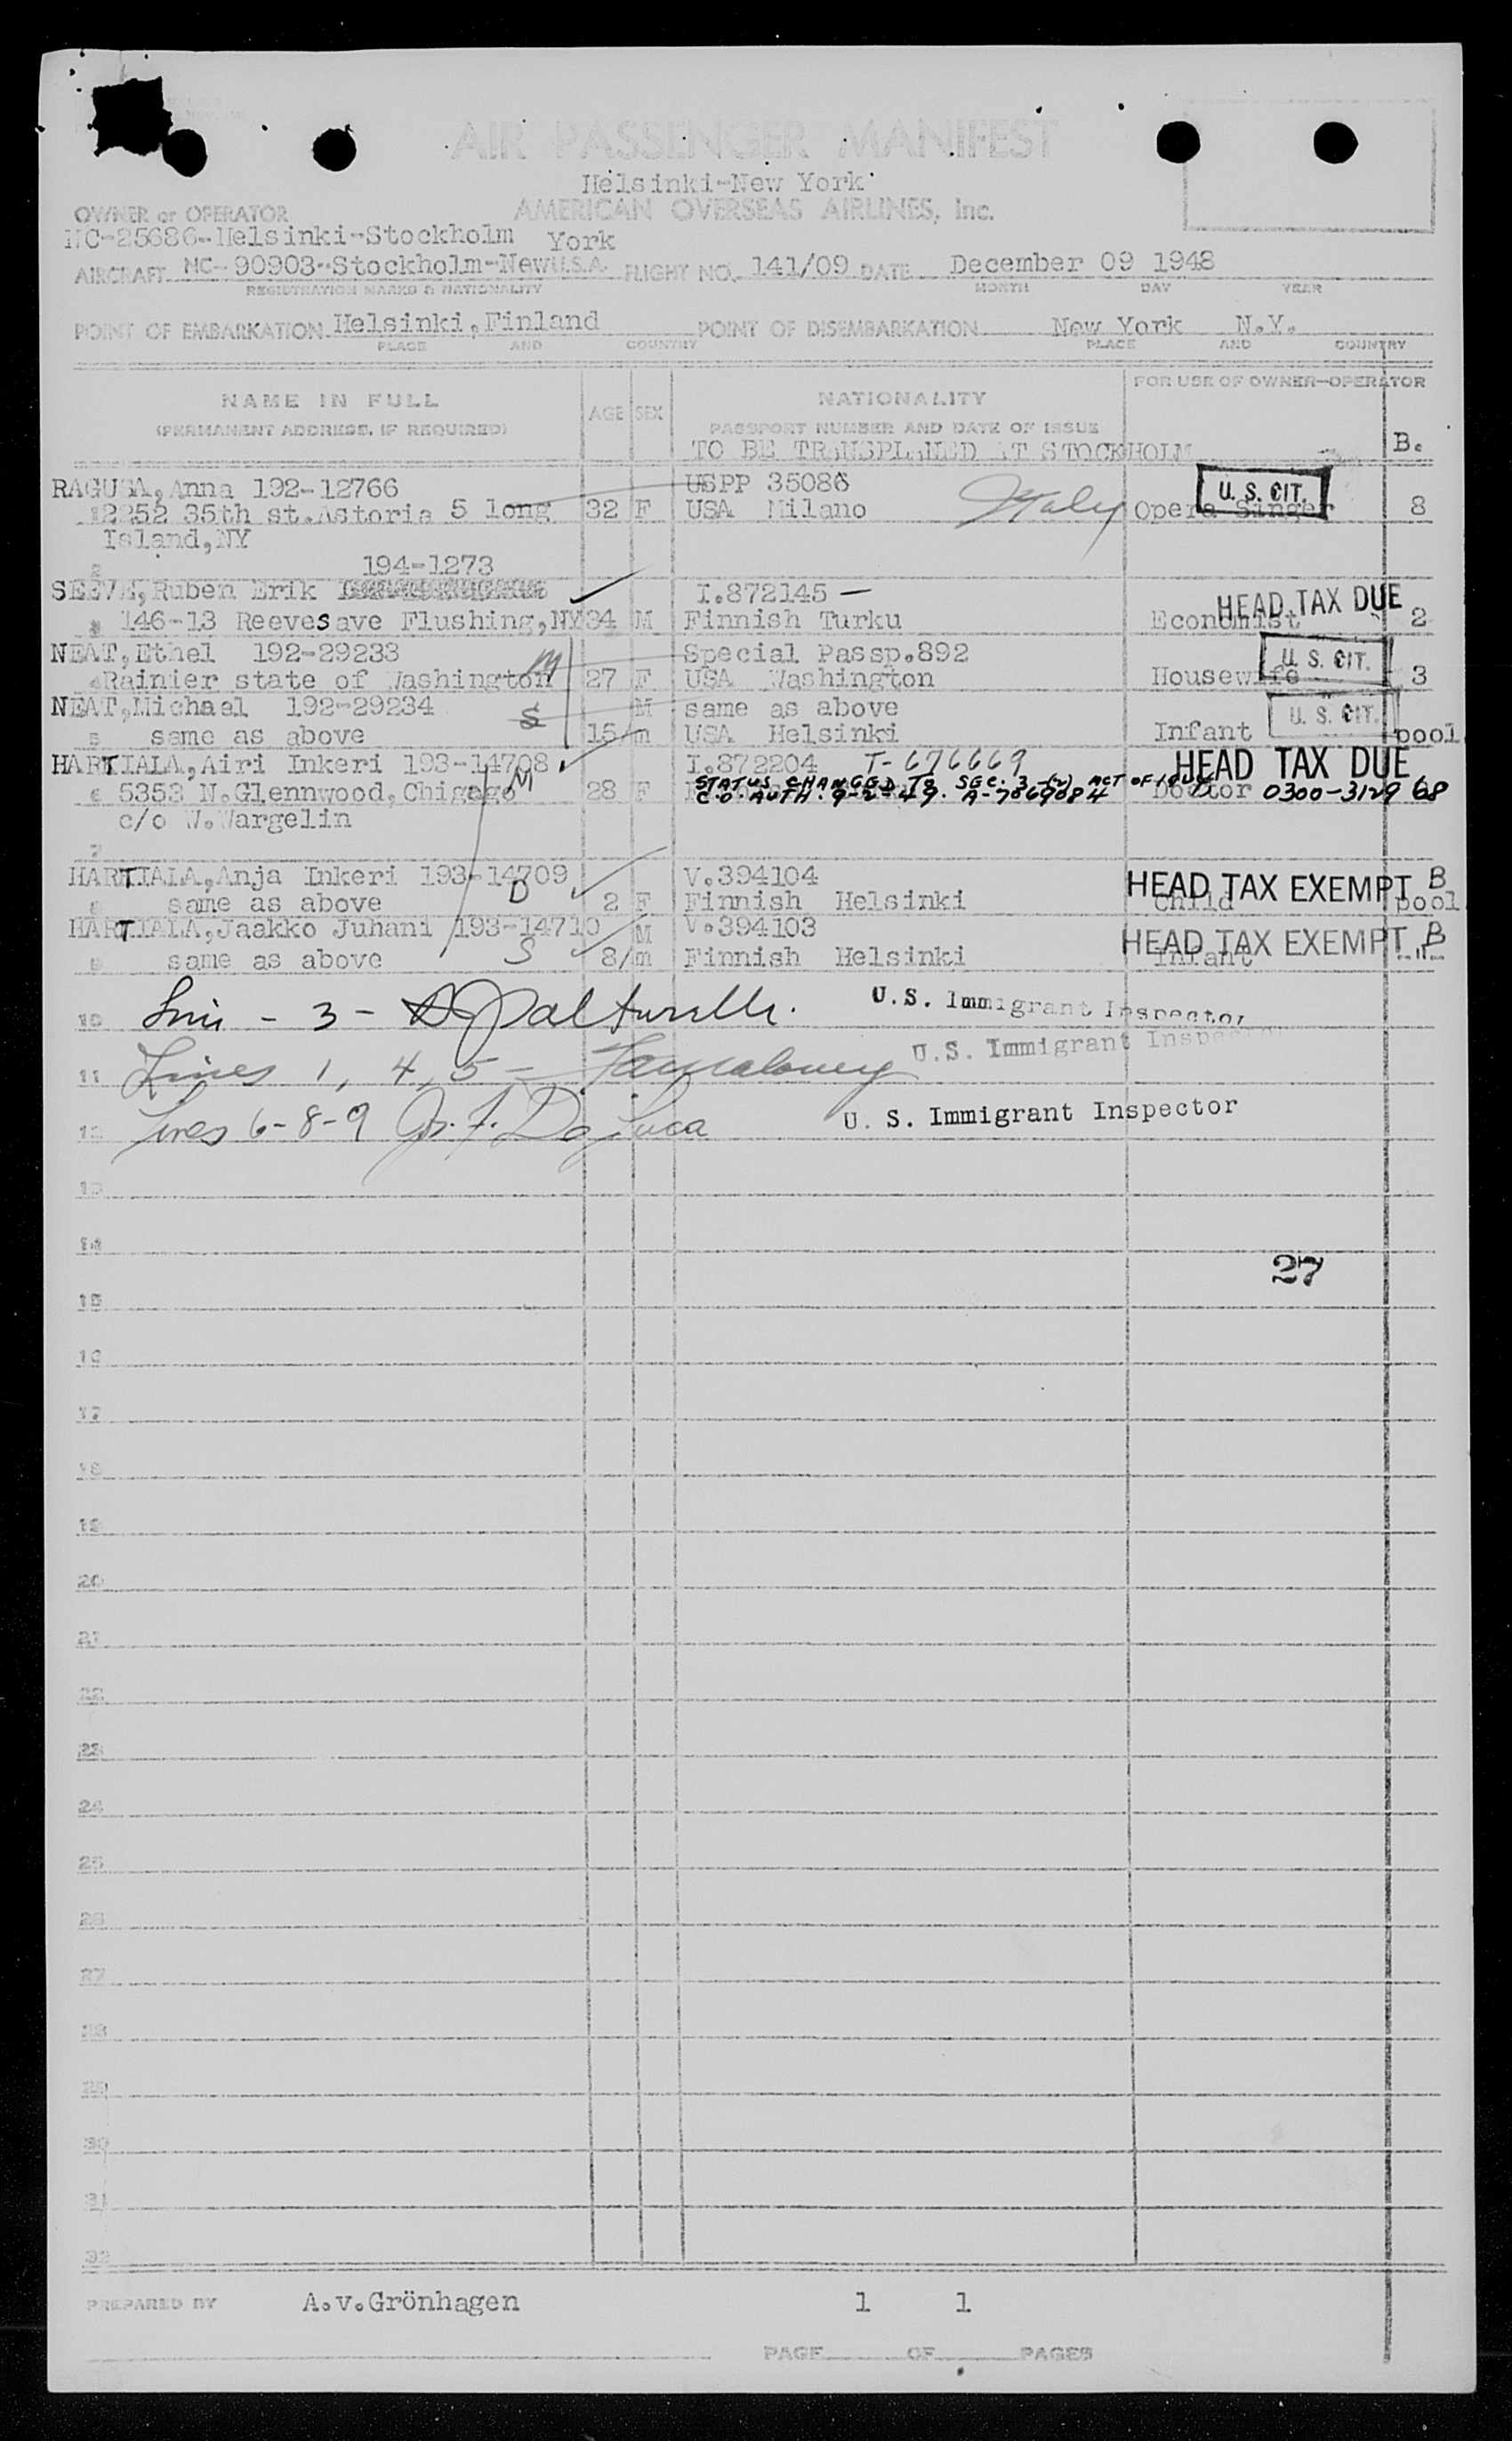 AIR PASSENGER MANIFEST
Helsinki-New York
OWNER or OPERATOR AMERICAN OVERSEAS AIRLINES, Inc.
NC-25686-Helsinki-Stockholm York
AIRCRAFT NC-90903-Stockholm-New U.S.A. FLIGHT NO. 141/09 DATE December 09 1948
REGISTRATION MARKS & NATIONALITY MONTH DAY YEAR
POINT OF EMBARKATION Helsinki, Finland POINT OF DISEMBARKATION New York N.Y.
PLACE AND COUNTRY PLACE AND COUNTRY
NAME IN FULL AGE SEX NATIONALITY FOR USE OF OWNER-OPERATOR
(PERMANENT ADDRESS, IF REQUIRED) PASSPORT NUMBER AND DATE OF ISSUE
TO BE TRANSPLANED AT STOCKHOLM B.
RAGUSA, Anna 192-12766 USPP 35086 U.S. CIT.
2252 35th st. Astoria 5 long 32 F USA Milano Italy Opera Singer 8
Island, NY
194-1273
SEEVE, Ruben Erik I.872145 — HEAD TAX DUE
146-13 Reeves ave Flushing, NY 34 M Finnish Turku Economist 2
NEAT, Ethel 192-29233 M Special Passp.892 U.S. CIT.
4 Rainier state of Washington 27 F USA Washington Housewife 3
NEAT, Michael 192-29234 S M same as above U.S. CIT.
5 same as above 15/m USA Helsinki Infant pool
HARTIALA, Airi Inkeri 193-14708 I.872204 T-676669 HEAD TAX DUE
6 5353 N.Glennwood, Chigago M 28 F STATUS CHANGED TO SEC. 3-(2) ACT OF 1924 Doctor 0300-3129 68
C.O. AUTH. 9-2-49. A-7869084
c/o W.Wargelin
7
HARTIALA, Anja Inkeri 193-14709 V.394104 HEAD TAX EXEMPT B
8 same as above D 2 F Finnish Helsinki Child pool
HARTIALA, Jaakko Juhani 193-14710 M V.394103 HEAD TAX EXEMPT B
9 same as above S 8/m Finnish Helsinki Infant "
10 - 3 - U.S. Immigrant Inspector
11 Lines 1, 4, 5 - U.S. Immigrant Inspector
12 Lines 6-8-9 U. S. Immigrant Inspector
13
14
27
15
16
17
18
19
20
21
22
23
24
25
26
27
28
29
30
31
32
PREPARED BY A.v.Grönhagen 1 1
PAGE OF PAGES